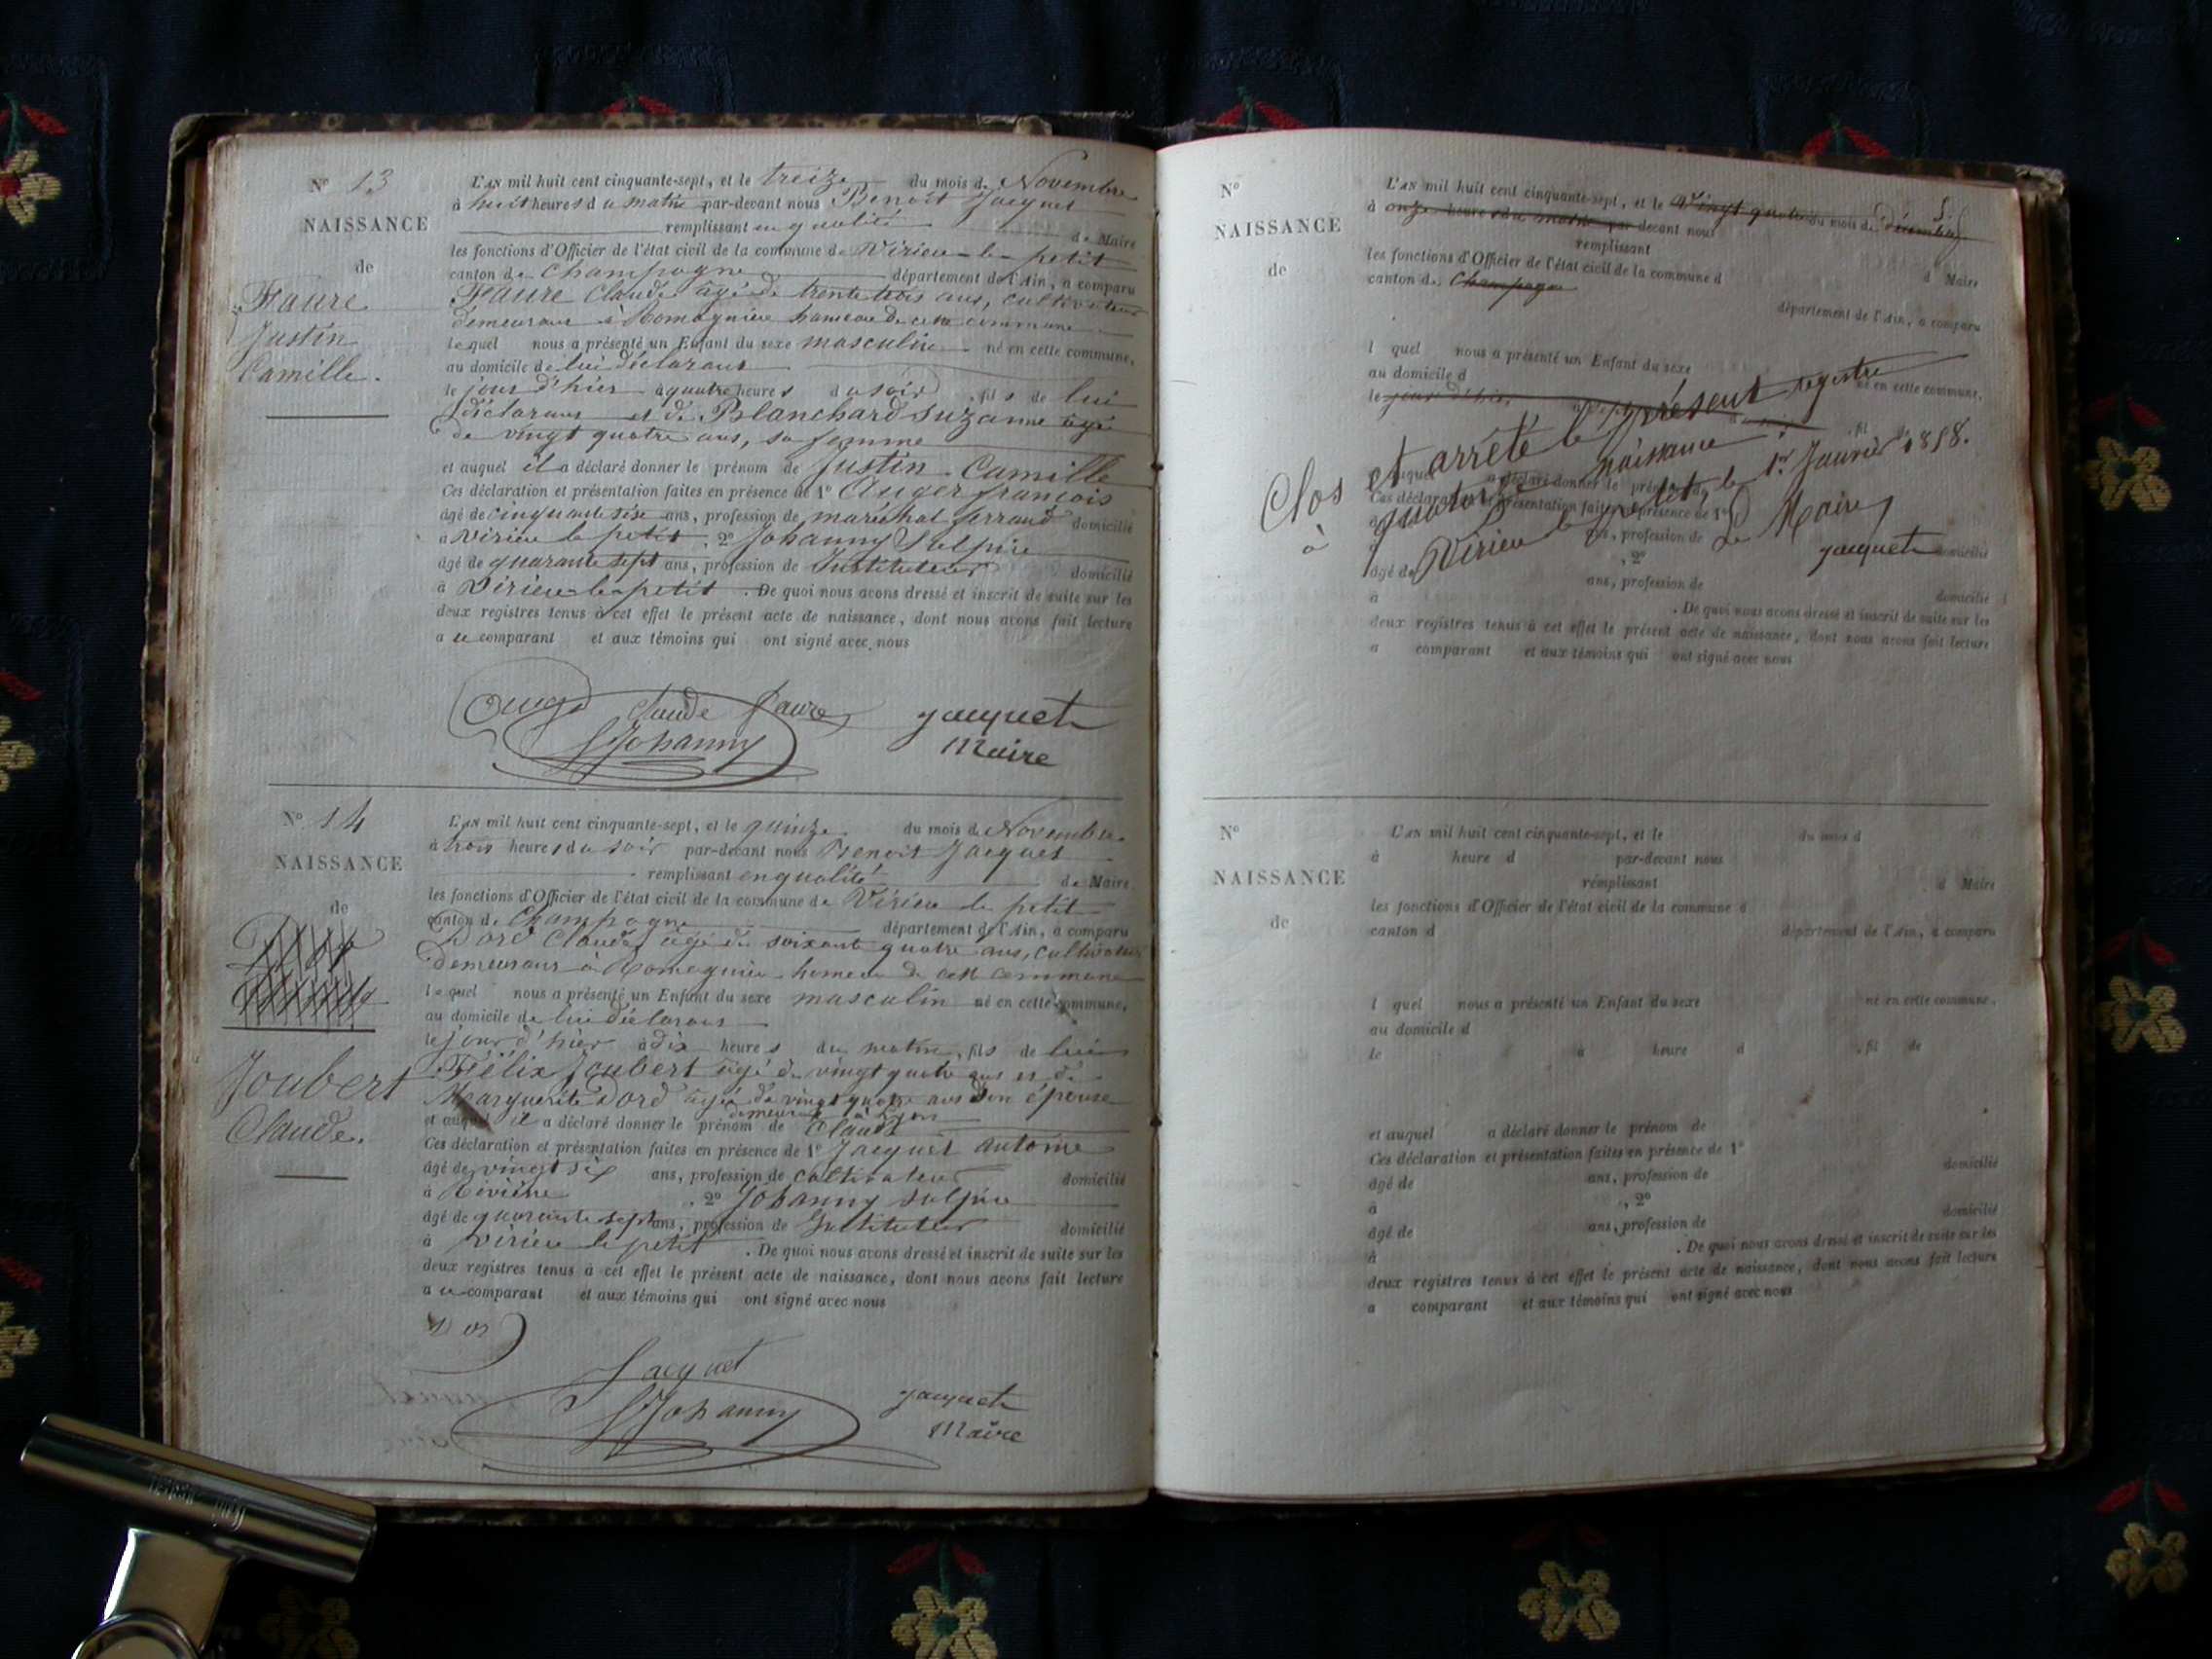 N° 13
NAISSANCE
de
Faure
Justin
Camille.
L'AN mil huit cent cinquante-sept, et le treize du mois de Novembre
à huit heures du matin par-devant nous Benoit Jacquet
remplissant en qualité de Maire
les fonctions d'Officier de l'état civil de la commune de Virieu-le-petit
canton de Champagne département de l'Ain, a comparu
Faure Claude âgé de trente trois ans, cultivateur
demeurant à Romagnieu hameau de cette commune
lequel nous a présenté un Enfant du sexe masculin né en cette commune,
au domicile de lui déclarant
le jour d'hier à quatre heures du soir, fils de lui
déclarant et de Blanchard Suzanne âgée
de vingt quatre ans, sa femme
et auquel il a déclaré donner le prénom de Justin Camille
Ces déclaration et présentation faites en présence de 1° Auger françois
âgé de cinquante six ans, profession de maréchal ferrand domicilié
à Virieu le petit, 2° Johanny Sulpice
âgé de quarante sept ans, profession de Instituteur domicilié
à Virieu-le-petit. De quoi nous avons dressé et inscrit de suite sur les
deux registres tenus à cet effet le présent acte de naissance, dont nous avons fait lecture
a ce comparant et aux témoins qui ont signé avec nous
Auger Claude Faure Jacquet
Johanny Maire
N° 14
NAISSANCE
de
Joubert
Claude.
L'AN mil huit cent cinquante-sept, et le quinze du mois de Novembre
à trois heures du soir par-devant nous Benoit Jacquet
remplissant en qualité de Maire
les fonctions d'Officier de l'état civil de la commune de Virieu le petit
canton de Champagne département de l'Ain, a comparu
Dord Claude âgé de soixante quatre ans, cultivateur
demeurant à Romagnieu hameau de cette commune
lequel nous a présenté un Enfant du sexe masculin né en cette commune,
au domicile de lui déclarant
le jour d'hier à dix heures du matin, fils de lui
Félix Joubert âgé de vingt quatre ans et de
Marguerite Dord âgée de vingt quatre ans son épouse
demeurant à Lyon
et auquel il a déclaré donner le prénom de Claude
Ces déclaration et présentation faites en présence de 1° Jacquet antoine
âgé de vingt six ans, profession de cultivateur domicilié
à, 2° Johanny Sulpice
âgé de quarante sept ans, profession de Instituteur domicilié
à Virieu le petit. De quoi nous avons dressé et inscrit de suite sur les
deux registres tenus à cet effet le présent acte de naissance, dont nous avons fait lecture
a ce comparant et aux témoins qui ont signé avec nous
Jacquet
Johanny Jacquet
Maire
N°
NAISSANCE
de
L'AN mil huit cent cinquante-sept, et le vingt quatre du mois de décembre
à onze heures du matin par-devant nous
remplissant
d Maire
les fonctions d'Officier de l'état civil de la commune d
canton de Champagne
département de l'Ain, a comparu
l quel nous a présenté un Enfant du sexe né en cette commune,
au domicile d
le jour d'hier, à fil
Clos et arrêté le présent registre
à quatorze naissances
Virieu le petit le 1er Janvier 1858.
Le Maire
Jacquet
et auquel a déclaré donner le prénom de
Ces déclaration et présentation faites en présence de 1°
ans, profession de domicilié
, 2°
âgé de ans, profession de domicilié
à. De quoi nous avons dressé et inscrit de suite sur les
deux registres tenus à cet effet le présent acte de naissance, dont nous avons fait lecture
a comparant et aux témoins qui ont signé avec nous
N°
NAISSANCE
de
L'AN mil huit cent cinquante-sept, et le du mois d
à heure d par-devant nous
remplissant d Maire
les fonctions d'Officier de l'état civil de la commune d
canton d département de l'Ain, a comparu
l quel nous a présenté un Enfant du sexe né en cette commune,
au domicile d
le à heure d, fil de
et auquel a déclaré donner le prénom de
Ces déclaration et présentation faites en présence de 1°
âgé de ans, profession de domicilié
à, 2°
âgé de ans, profession de domicilié
à. De quoi nous avons dressé et inscrit de suite sur les
deux registres tenus à cet effet le présent acte de naissance, dont nous avons fait lecture
a comparant et aux témoins qui ont signé avec nous